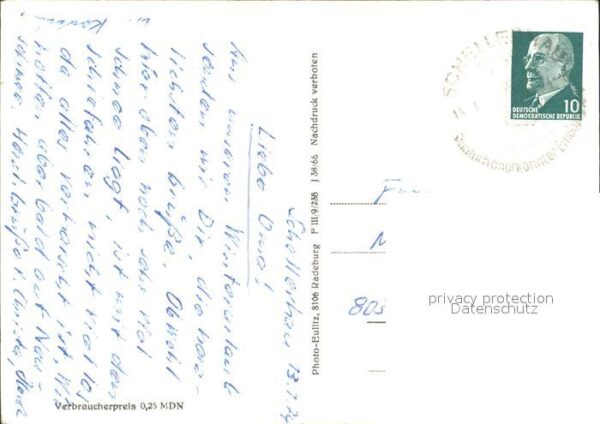 Schellerhau 13.1.74
Liebe Oma!
Aus unserem Winterurlaub
senden wir Dir, die herz-
lichsten Grüße. Obwohl
hier oben noch sehr viel
Schnee liegt, ist mit dem
Schiefahren nicht viel los
da alles verharscht ist. Wir
hoffen aber bald auf Neu-
schnee. Herzl. Grüße
u.
Verbraucherpreis 0,25 MDN
Photo-Eulitz, 8106 Radeburg P III/9/286 J 38/66 Nachdruck verboten
SCHELLERHAU
DEUTSCHE
DEMOKRATISCHE REPUBLIK
10
Fr
805
privacy protection
Datenschutz